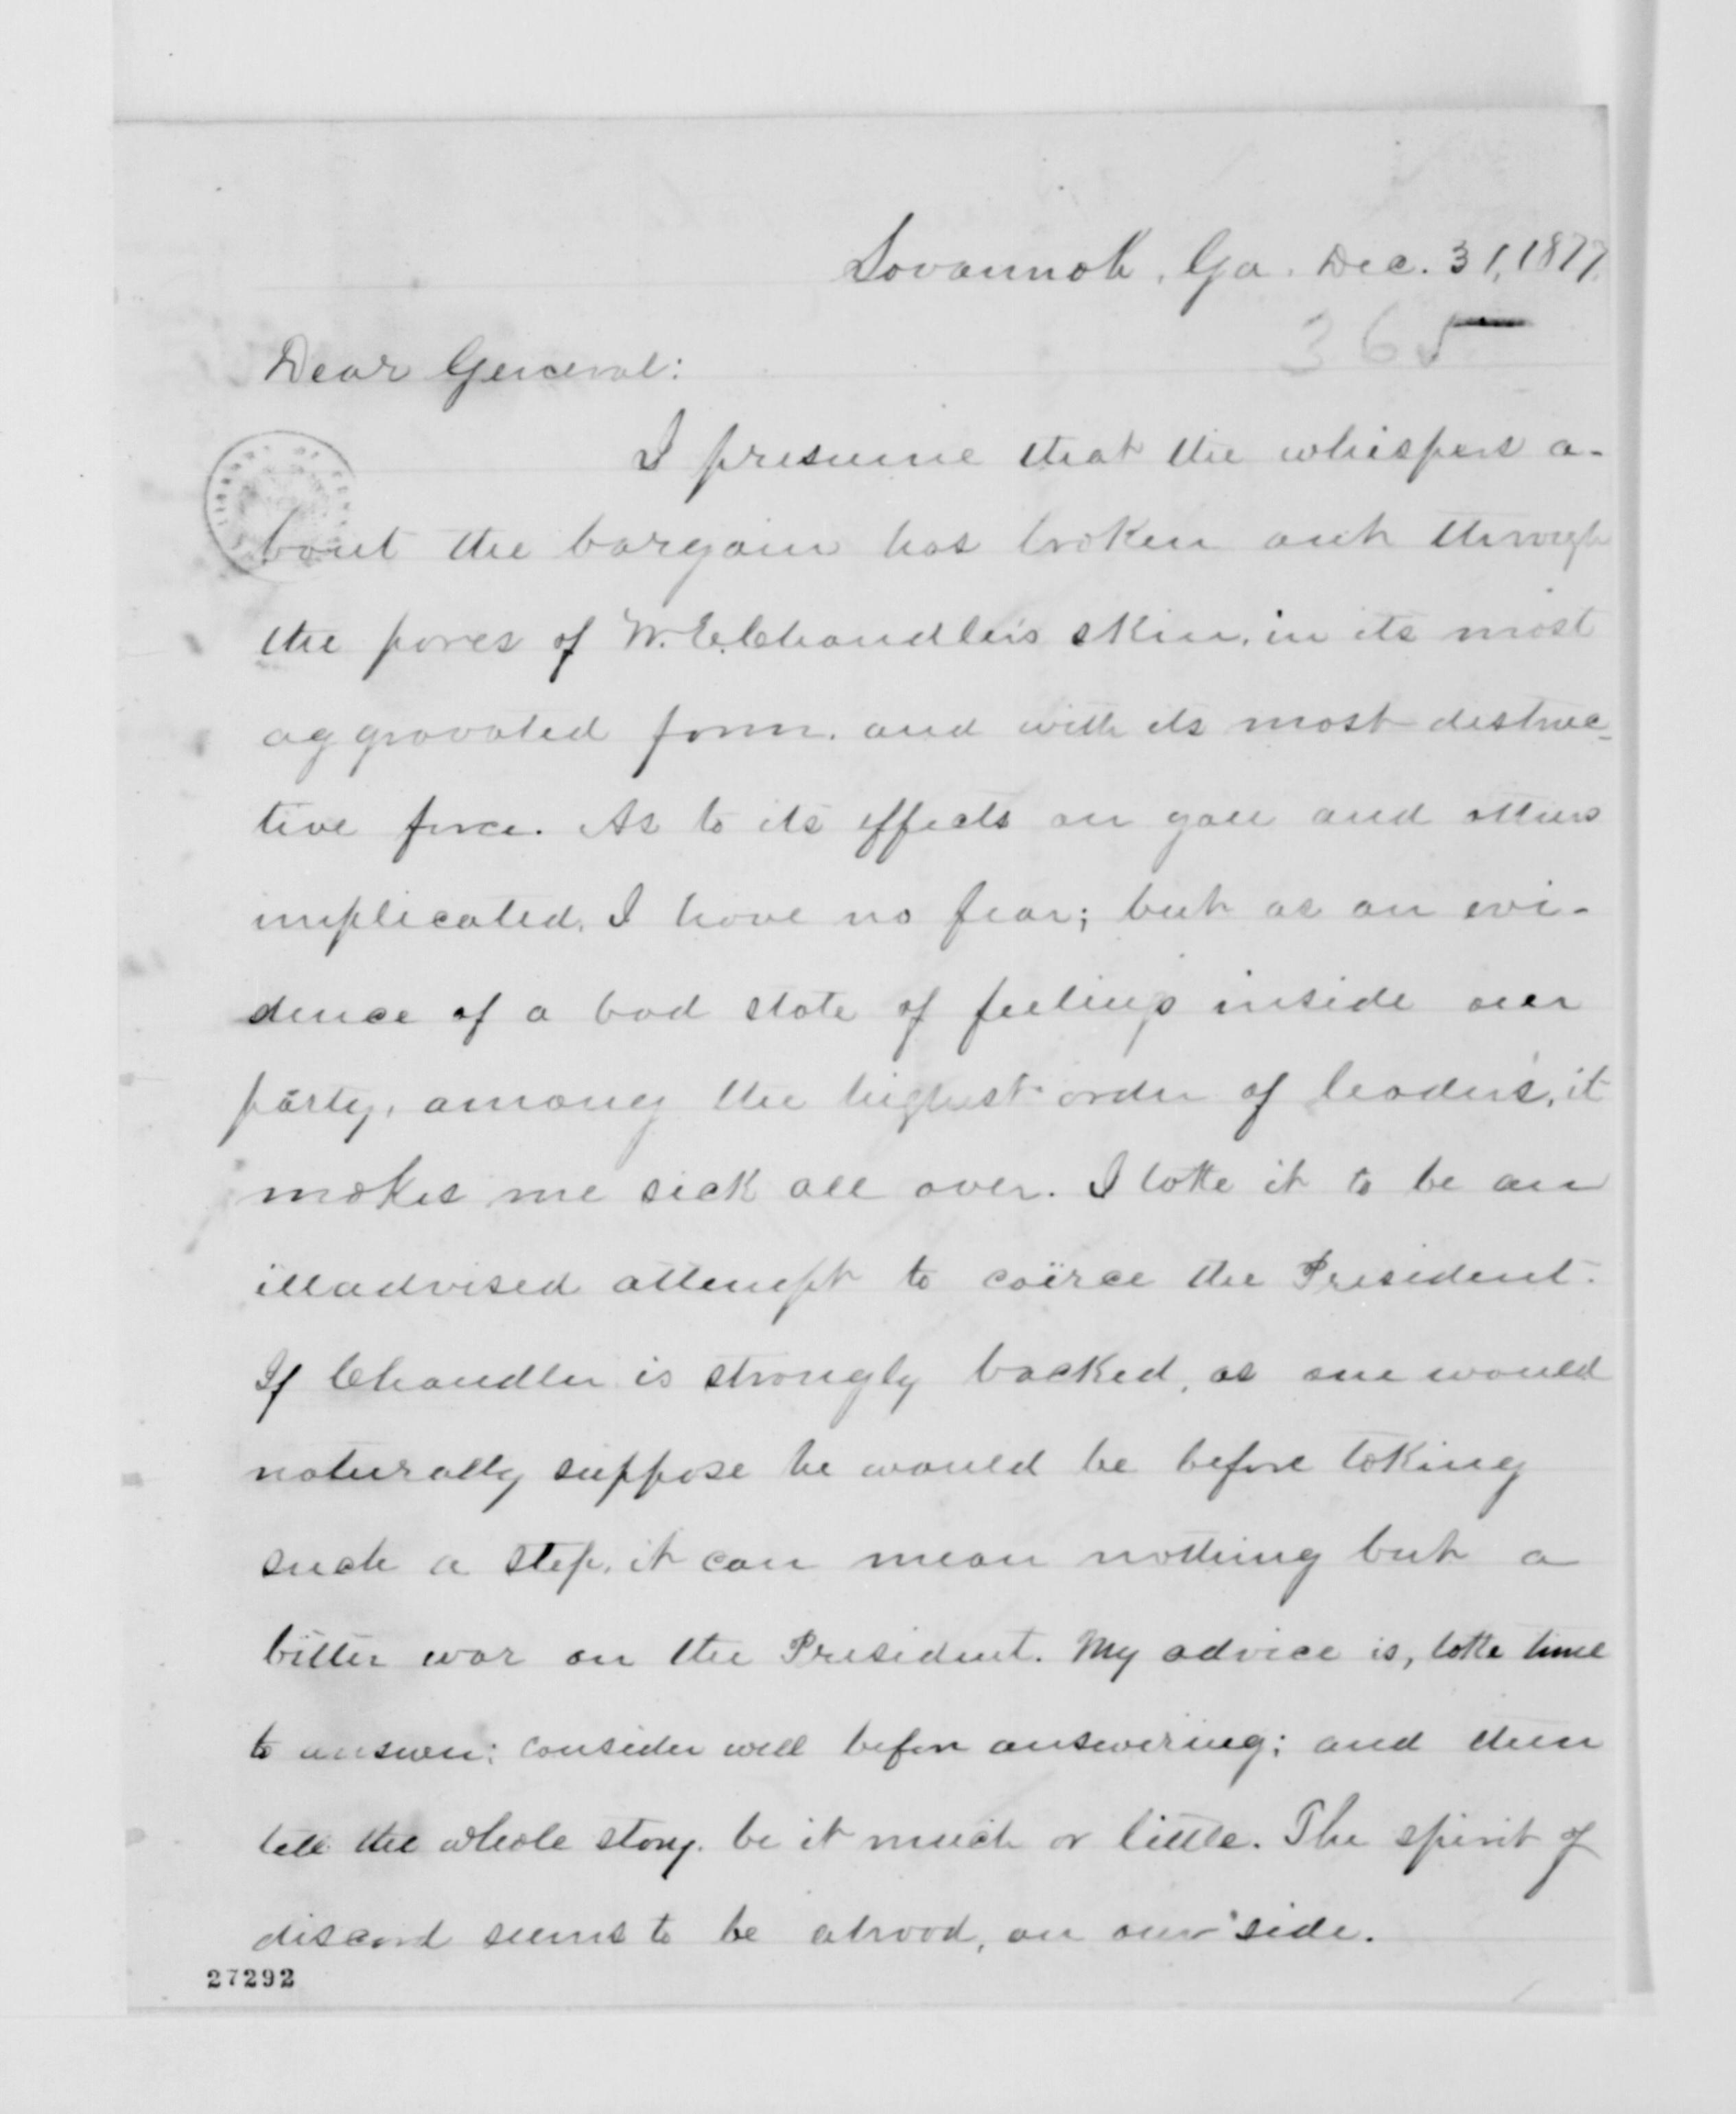 Savannah, Ga. Dec. 31, 1877.
365
Dear General:
I presume that the whispers a-
bout the bargain has broken out through
the pores of W. E. Chandler's skin, in its most
aggravated form, and with its most destruc-
tive force. As to its effects on you and others
implicated, I have no fear; but as an evi-
dence of a bad state of feelings inside our
party, among the highest order of leaders, it
makes me sick all over. I take it to be an
illadvised attempt to coërce the President.
If Chandler is strongly backed, as one would
naturally suppose he would be before taking
such a step, it can mean nothing but a
bitter war on the President. My advice is, take time
to answer; consider well before answering; and then
tell the whole story, be it much or little. The spirit of
discord seems to be abroad, on our side.
27292